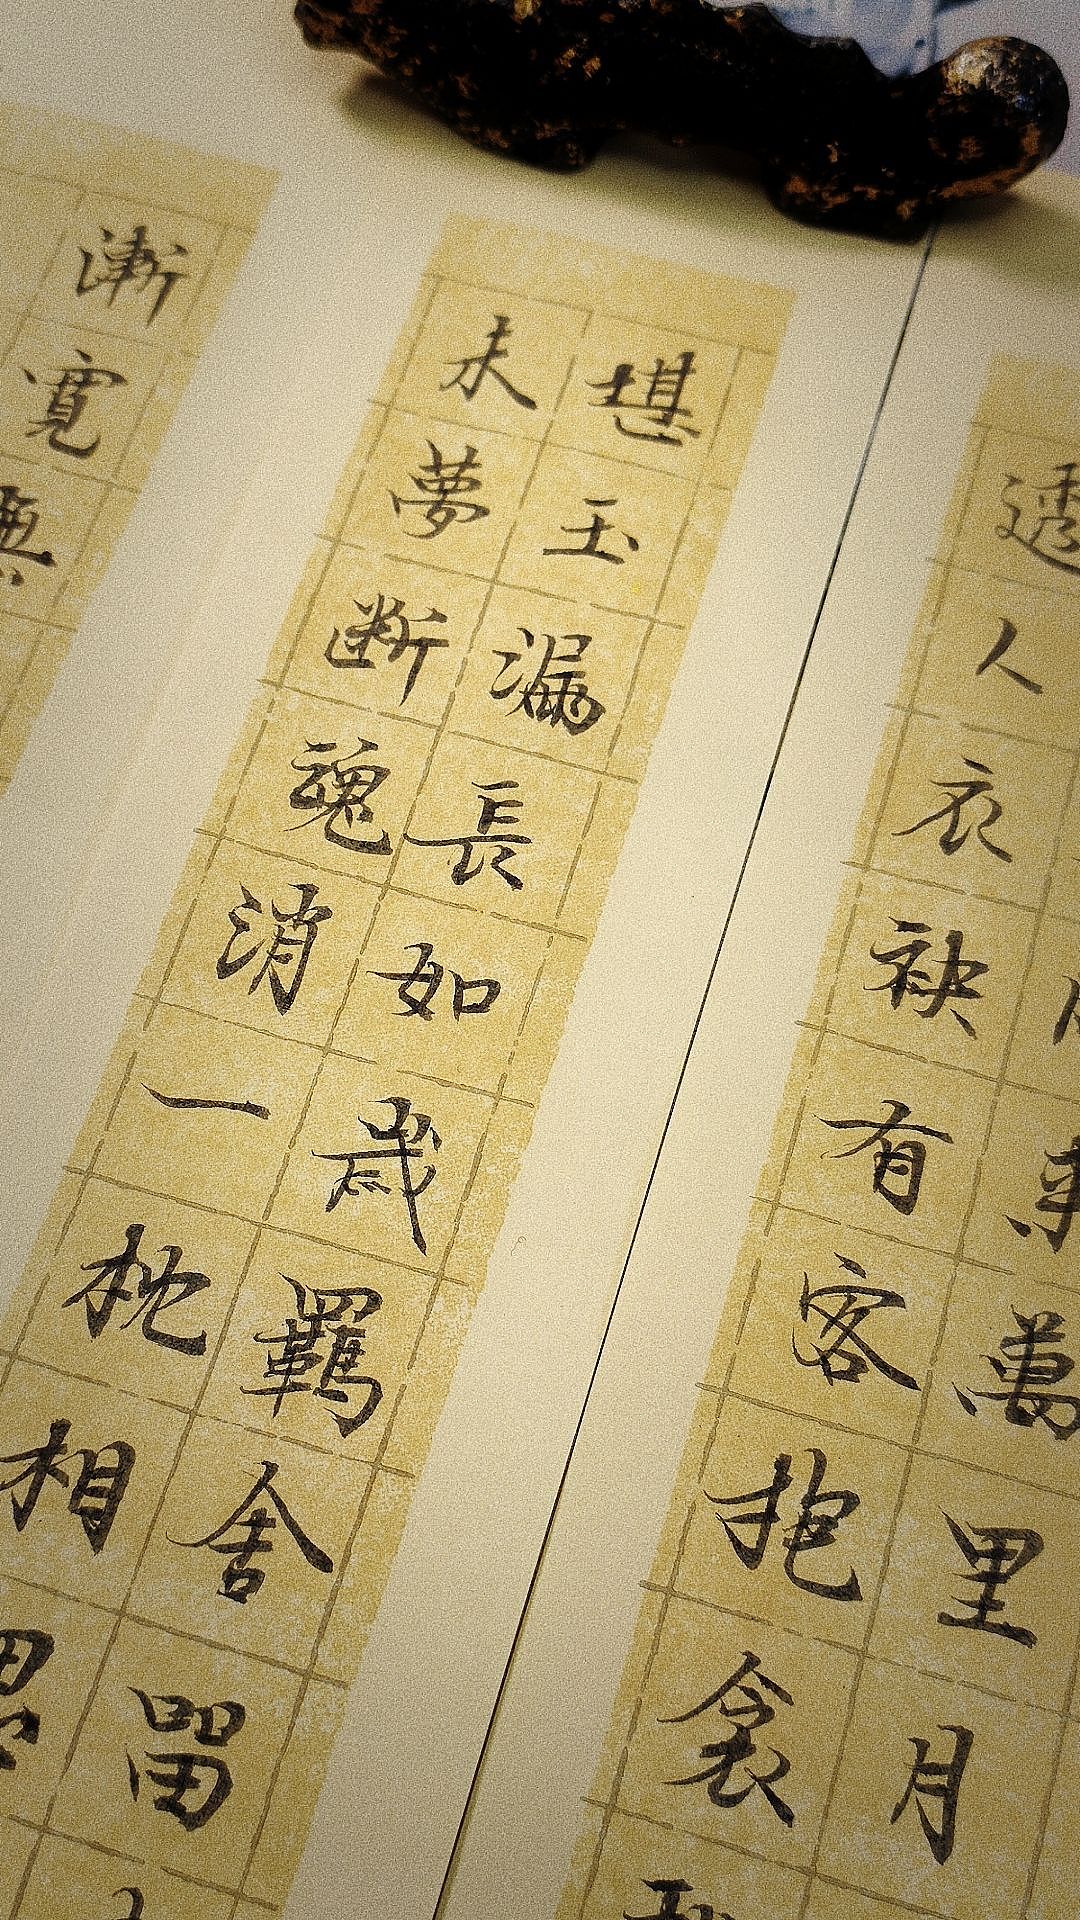 來萬里月
透人衣袂有客抱衾
堪玉漏長如歲羈舍留
未夢斷魂消一枕相
漸寬
無